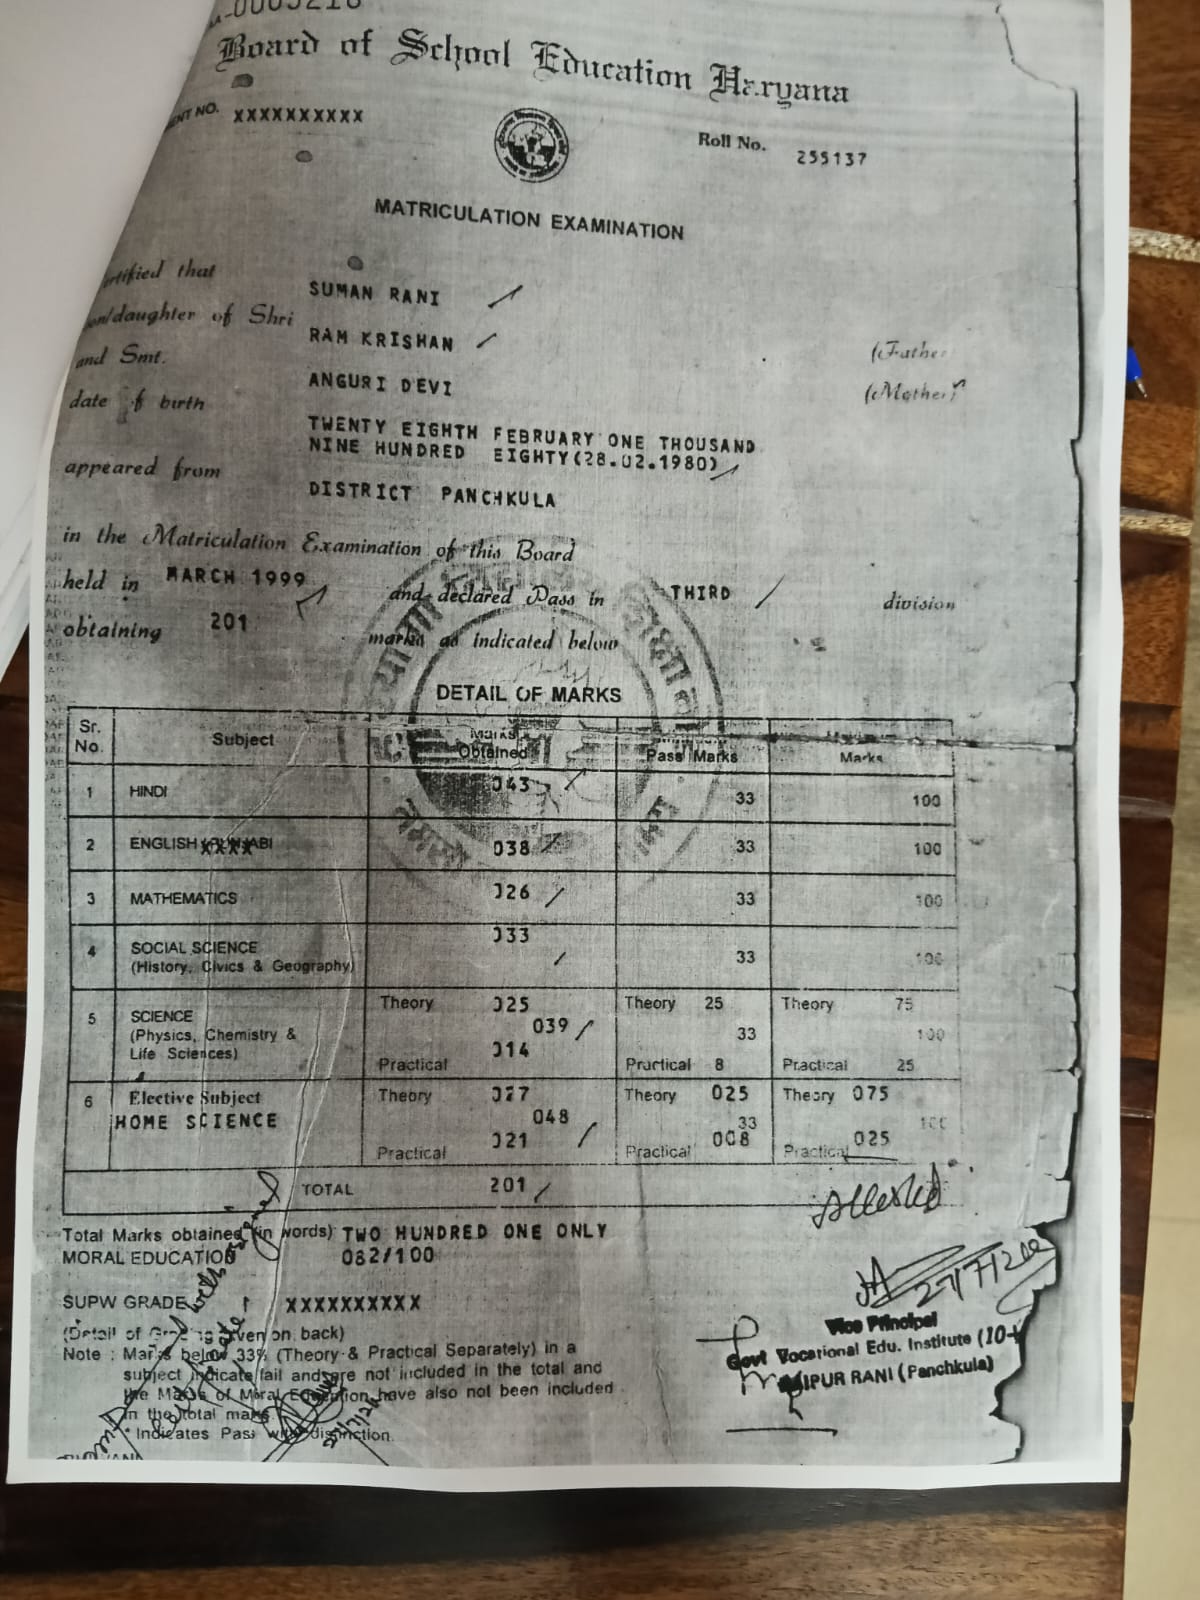 Board of School Education Haryana
NO. XXXXXXXXXX
Roll No. 255137
MATRICULATION EXAMINATION
that SUMAN RANI
daughter of Shri RAM KRISHAN (Father
and Smt. ANGURI DEVI (Mother)
date of birth TWENTY EIGHTH FEBRUARY ONE THOUSAND
NINE HUNDRED EIGHTY(28.02.1980)
appeared from DISTRICT PANCHKULA
in the Matriculation Examination of this Board
held in MARCH 1999 and declared Pass in THIRD division
obtaining 201 marks as indicated below
DETAIL OF MARKS
Sr. No. Subject Marks Obtained Pass Marks Marks
1 HINDI 043 33 100
2 ENGLISH 038 33 100
3 MATHEMATICS 026 33 100
4 SOCIAL SCIENCE 033 33 100
(History, Civics & Geography)
5 SCIENCE Theory 025 Theory 25 Theory 75
(Physics, Chemistry & 039 33 100
Life Sciences) Practical 014 Practical 8 Practical 25
6 Elective Subject Theory 027 Theory 025 Theory 075
HOME SCIENCE 048 33 100
Practical 021 Practical 008 Practical 025
TOTAL 201
Attested
Total Marks obtained (in words) TWO HUNDRED ONE ONLY
MORAL EDUCATION 082/100
SUPW GRADE XXXXXXXXXX
(Detail of on back)
Note : Marks below 33% (Theory & Practical Separately) in a
subject indicate fail and are not included in the total and
the Marks of Moral Education have also not been included
in the total marks.
* Indicates Pass with distinction.
Vice Principal
Govt Vocational Edu. Institute (10+
RANI (Panchkula)